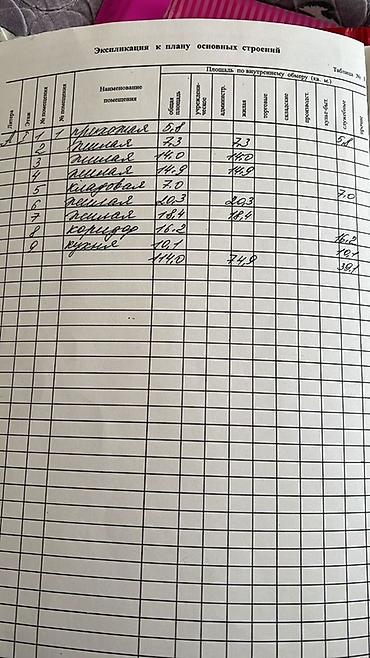 Экспликация к плану основных строений
Таблица № 1
Литера
Этаж
№ помещения
№ помещения
Наименование помещения
Площадь по внутреннему обмеру (кв. м.)
общая площадь
учрежденческое
администр.
жилая
торговые
складские
производст.
культ-быт.
служебные
прочие
А 1 1 1 прихожая 5,8 5,8
2 жилая 7,3 7,3
3 жилая 14,0 14,0
4 жилая 14,9 14,9
5 кладовая 7,0 7,0
6 жилая 20,3 20,3
7 жилая 18,4 18,4
8 коридор 16,2 16,2
9 кухня 10,1 10,1
114,0 74,9 39,1